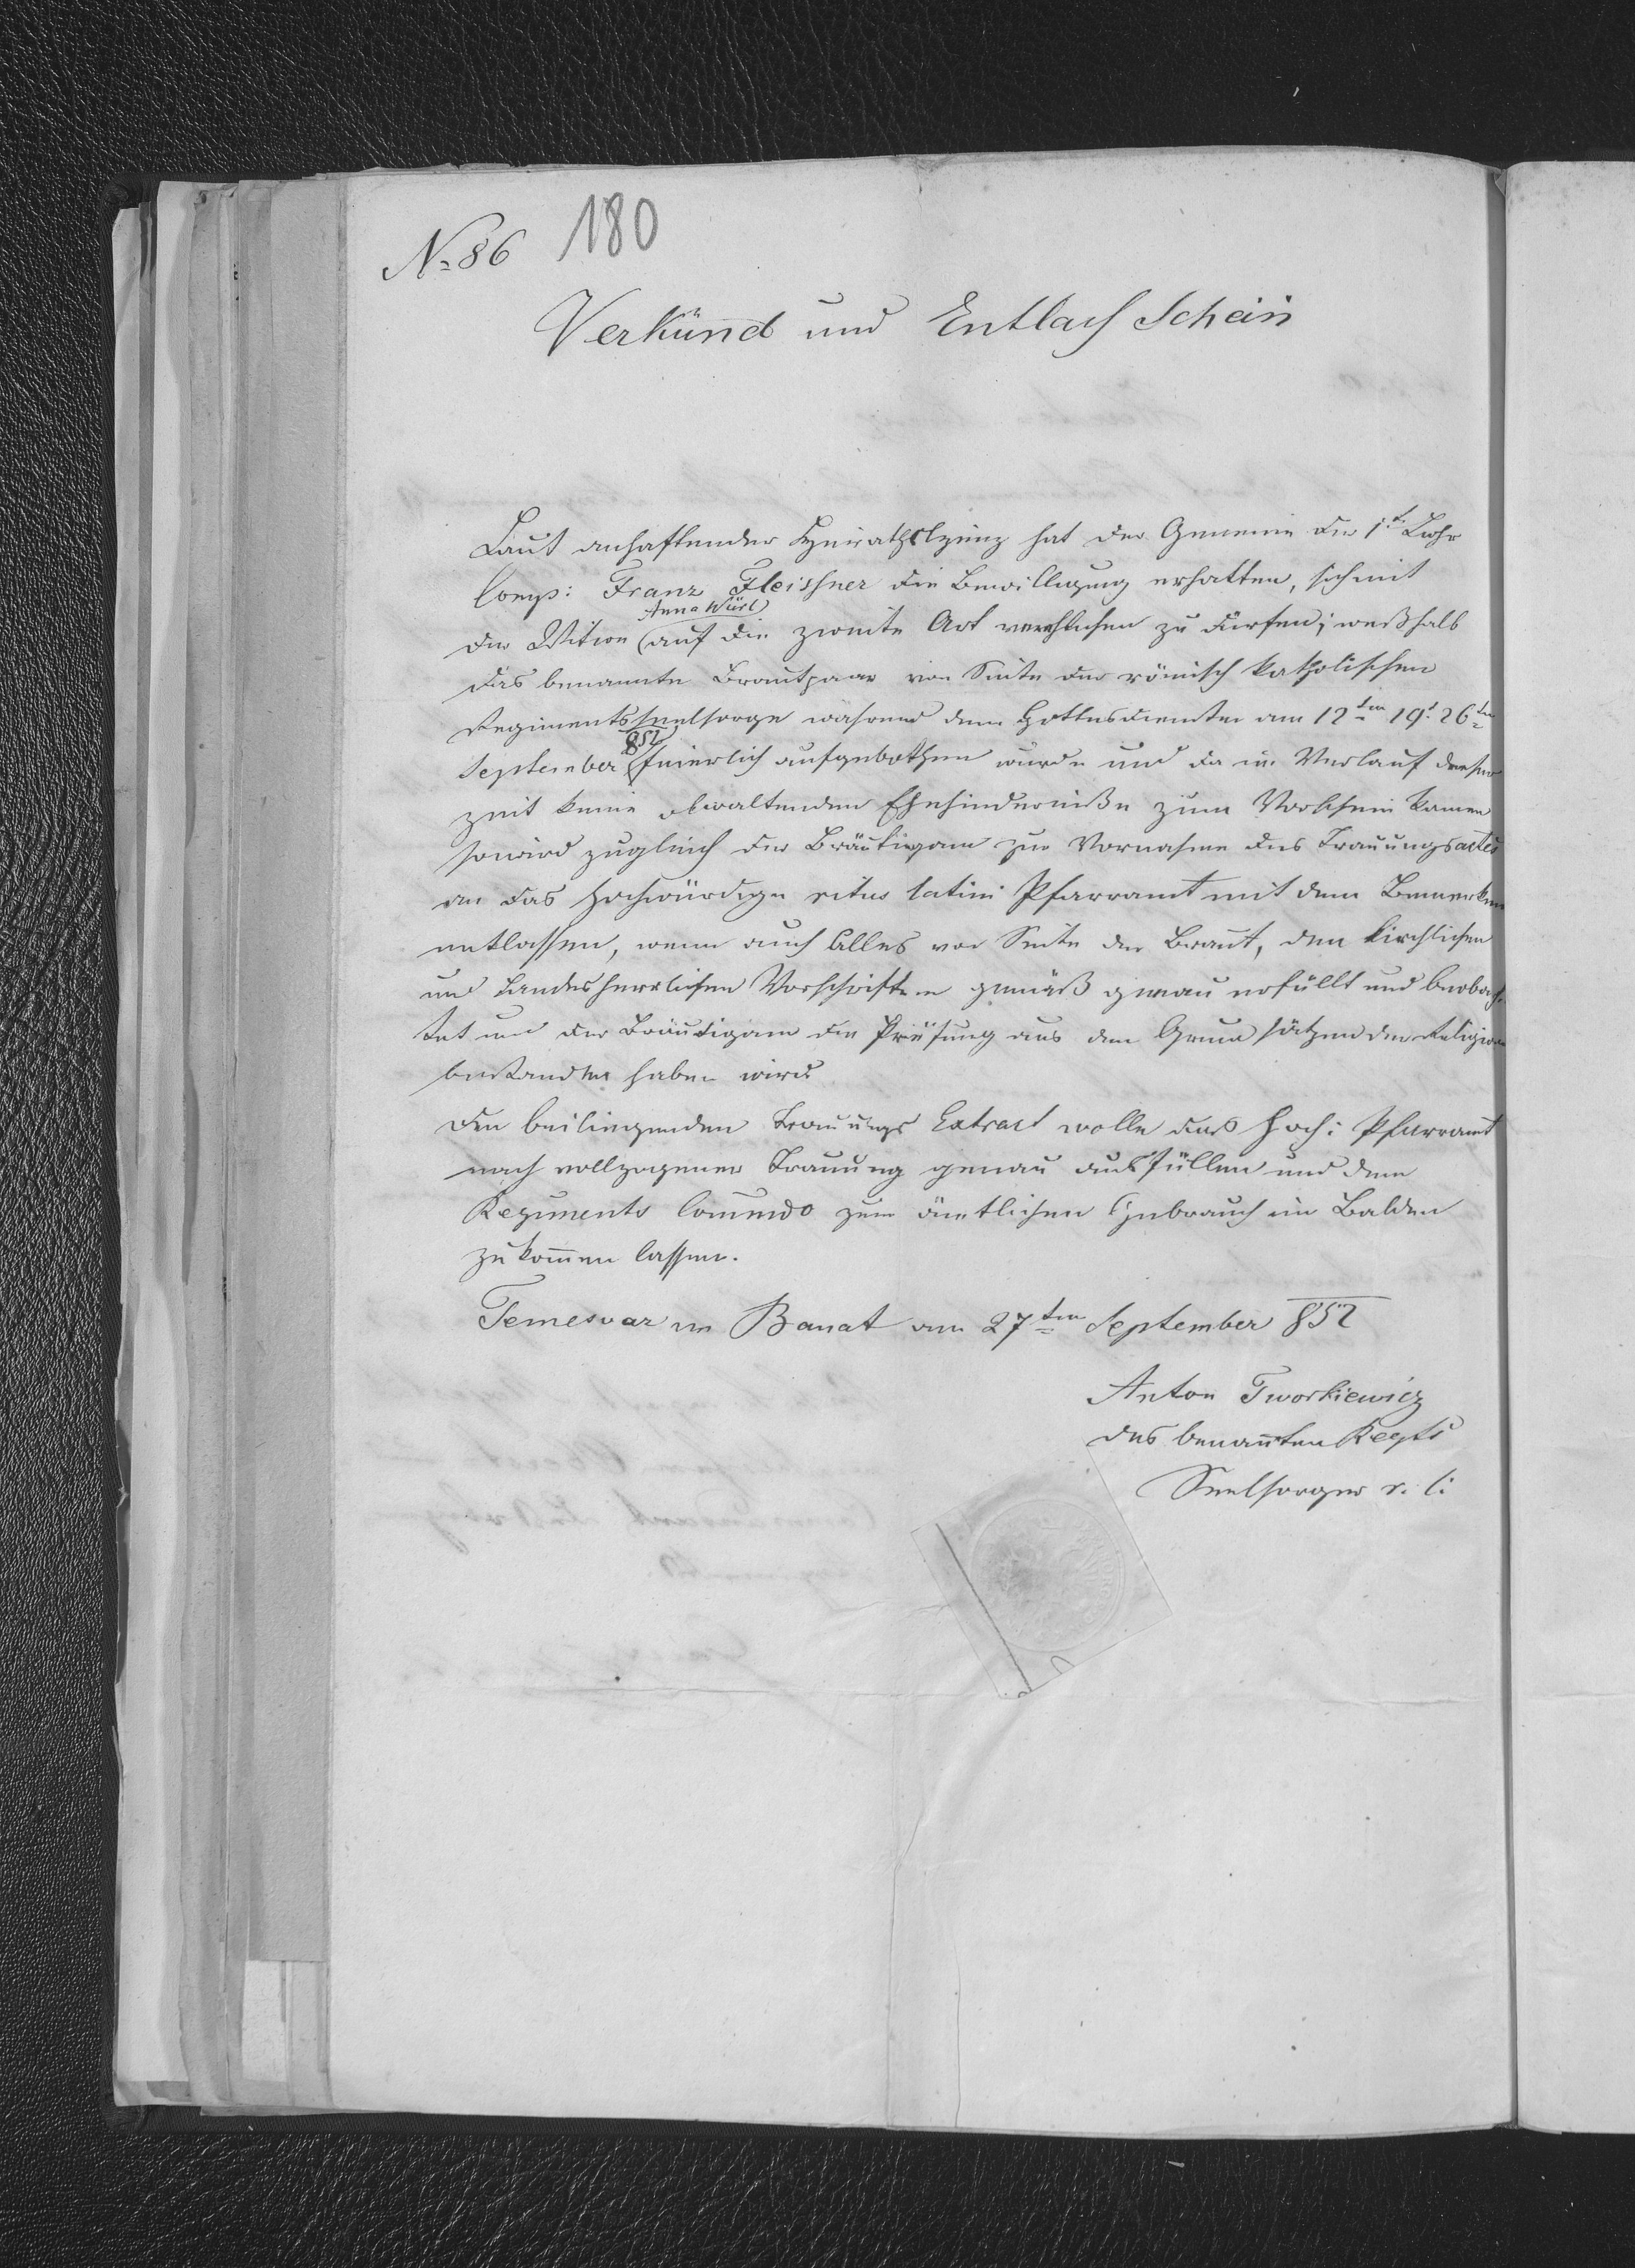 No 86 180
Verkünd und Entlaß Schein
Laut anhaftender Heirathslizenz hat der Gemeine der 1t
Comp: Franz Fleishner die Bewilligung erhalten, sich mit
Anna Würl
der Witwe (auf die zweite Art verehlichen zu dürfen; weßhalb
das benannte Brautpaar von Seite der römisch katholischen
Regimentsseelsorge während dem Gottesdienste am 12ten 19t 26ten
852
September (feierlich aufgebothen wurde und da im Verlauf dieser
Zeit keine obwaltenden Ehehinderniße zum Vorschein kamen
so wird zugleich der Bräutigam zur Vornahme des Trauungsactes
an das hochwürdige ritus latini Pfarramt mit dem Bemerken
entlassen, wenn auch Alles von Seite der Braut, den kirchlichen
und Landesherrlichen Vorschriften gemäß genau erfüllt und beobach-
tet und der Bräutigam die Prüfung aus den Grundsätzen der Religion
bestanden haben wird
Den beiliegenden Trauungs Extract wolle das Hoch: Pfarramt
nach vollzogener Trauung genau ausfüllen und dem
Regiments Comando zum ämtlichen Gebrauch im Balden
zukomen lassen.
Temesvar im Banat am 27ten September 852
Anton Tworkiewicz
des benannten Regts
Seelsorger r. l: